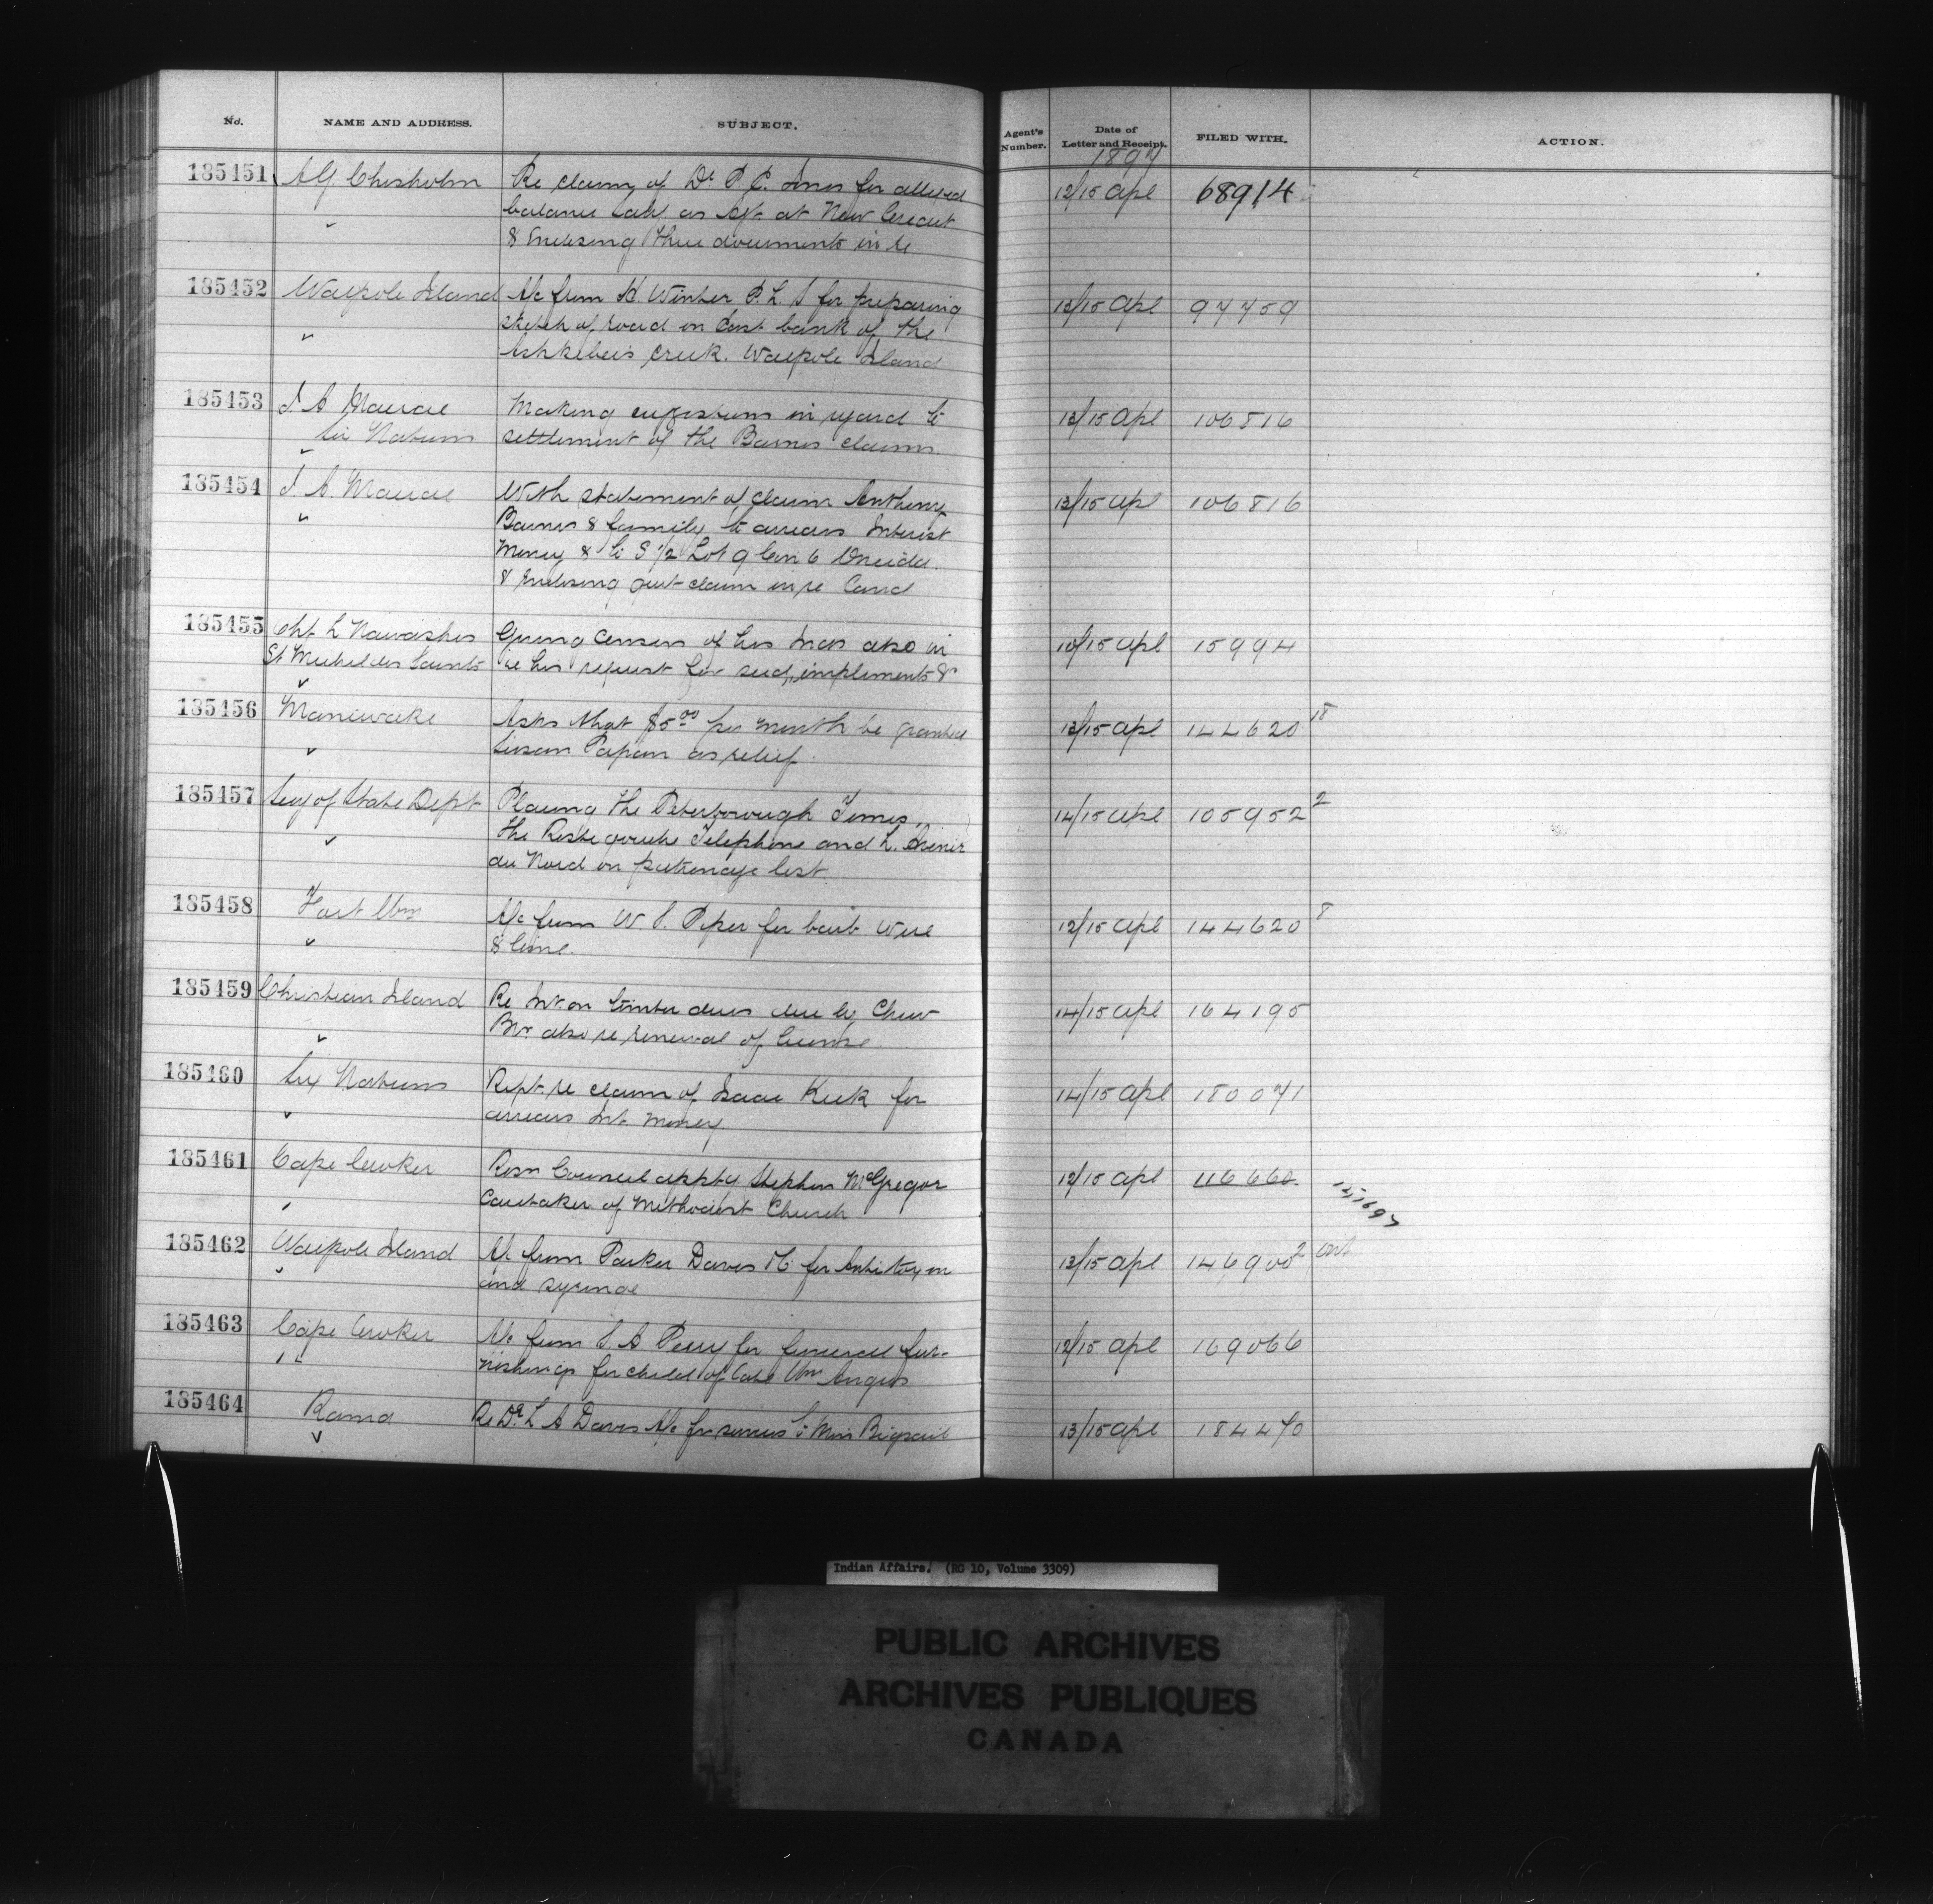 No. NAME AND ADDRESS. SUBJECT. Agent's Number. Date of Letter and Receipt. FILED WITH. ACTION.
1897
185451 A G Chisholm Re claim of Dr P. E. Jones for alleged 12/15 Apl 68914
balance Saly as Agt. at New Credit
& Enclosing three documents in re
185452 Walpole Island A/c from H. Winter P. L. S for preparing 13/15 Apl 97759
sketch of road on East bank of the
creek. Walpole Island
185453 J. A Macrae Making suggestions in regard to 13/15 Apl 106816
Six Nations settlement of the Barnes claims.
185454 J. A. Macrae With statement of claim Anthony 13/15 Apl 106816
Barnes & family to arrears Interest
Money & to S ½ Lot 9 Con 6 Oneida.
& Enclosing quit-claim in re Land
185455 Chf. L Nawashes Giving Census of his Inds also in 10/15 Apl 15994
St Michel des Saints re his request for seed, implements &c
185456 Maniwaki Asks that $5.00 per month be granted 13/15 Apl 144620 18
Susan Papan as relief.
185457 Secy of State Dept Placing The Peterborough Times, 14/15 Apl 105952 2
the Restigouche Telephone and L. Avenir
du Nord on patronage list.
185458 Fort Wm A/c from W. S. Piper for barb Wire 12/15 Apl 144620 8
& lime.
185459 Christian Island Re Int. on timber dues due by Chew 14/15 Apl 164195
Bros. also re renewal of license.
185460 Six Nations Rept. re claim of Isaac Keek for 14/15 Apl 180071
arrears Int. Money
185461 Cape Croker Resn Council apptg Stephen McGregor 12/15 Apl 116660
Caretaker of Methodist Church
185462 Walpole Island A/c from Parker Davis & Co for Antitoxin 13/15 Apl 146900 2
and syringe
185463 Cape Croker A/c from S. A Perry for funeral fur- 12/15 Apl 169066
" nishings for child of late Wm Angus
185464 Rama Re Dr. L A Davis A/c for services to Mrs Bigsail 13/15 Apl 184470
Indian Affairs. (RG 10, Volume 3309)
PUBLIC ARCHIVES
ARCHIVES PUBLIQUES
CANADA